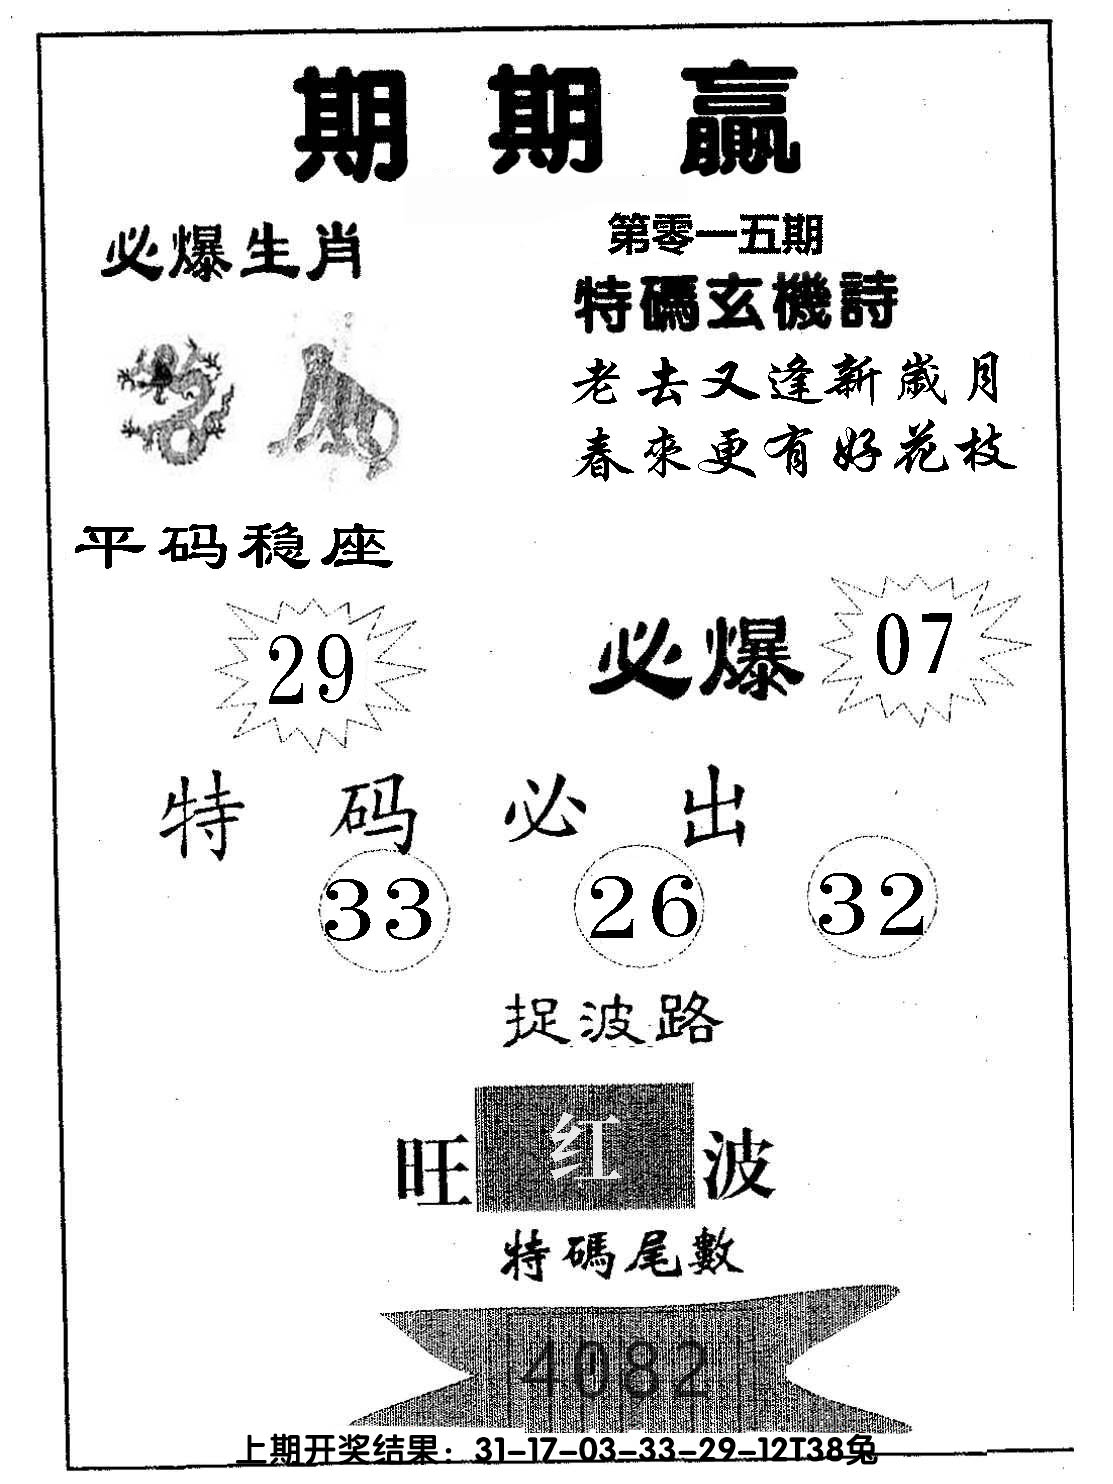 期期贏
必爆生肖
第零一五期
特碼玄機詩
老去又逢新歲月
春來更有好花枝
平码稳座
29
必爆 07
特码必出
33 26 32
捉波路
旺红波
特碼尾數
4082
上期开奖结果：31-17-03-33-29-12T38兔